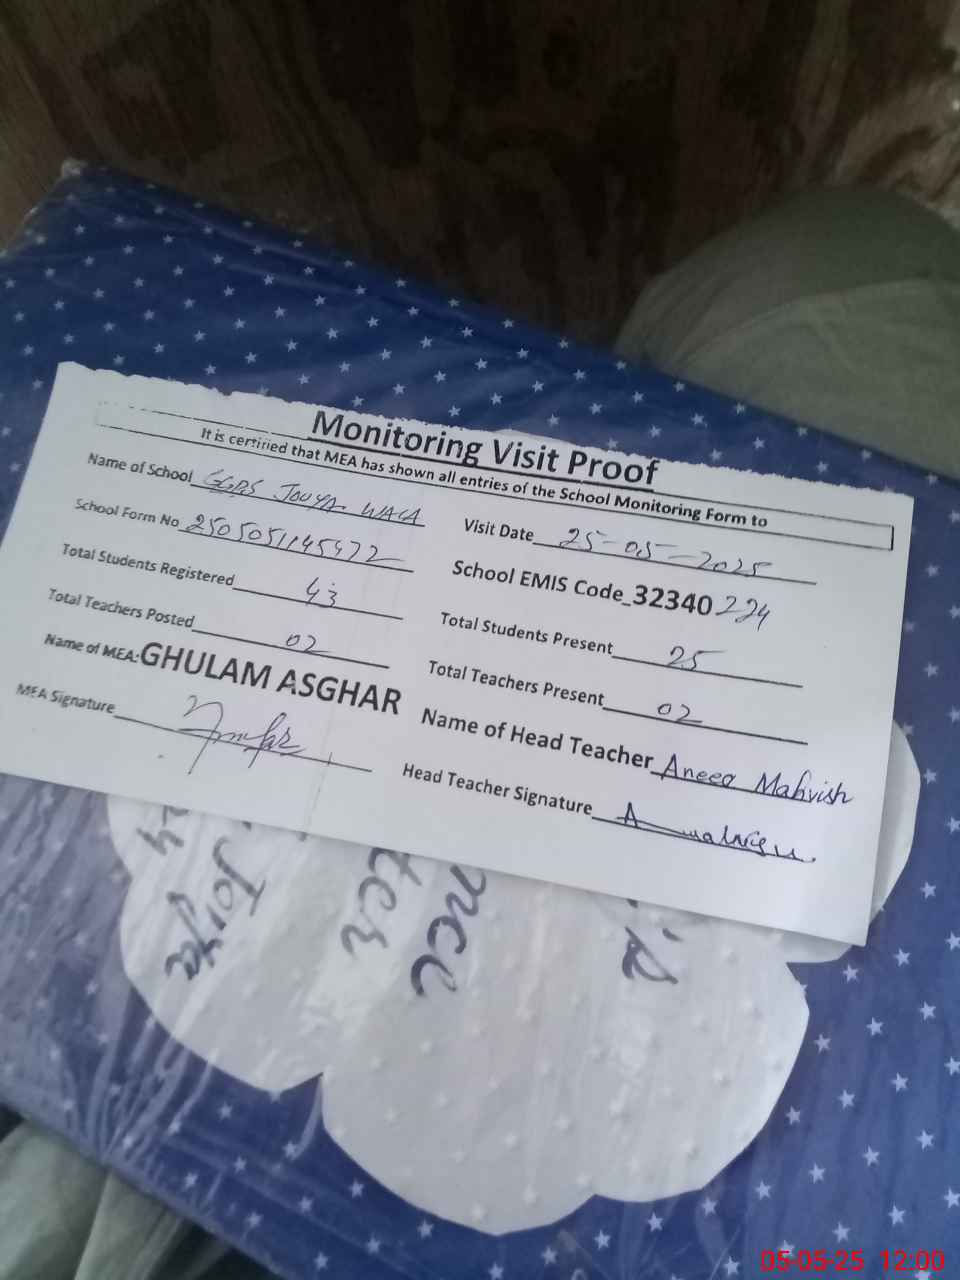 Monitoring Visit Proof
It is certified that MEA has shown all entries of the School Monitoring Form to
Name of School GGPS JOUYA WALA
Visit Date 25-05-2025
School Form No 2505051145472
School EMIS Code_32340224
Total Students Registered 43
Total Students Present 25
Total Teachers Posted 02
Total Teachers Present 02
Name of MEA: GHULAM ASGHAR
Name of Head Teacher Aneeq Mahvish
MEA Signature
Head Teacher Signature
Joyya
05-05-25 12:00